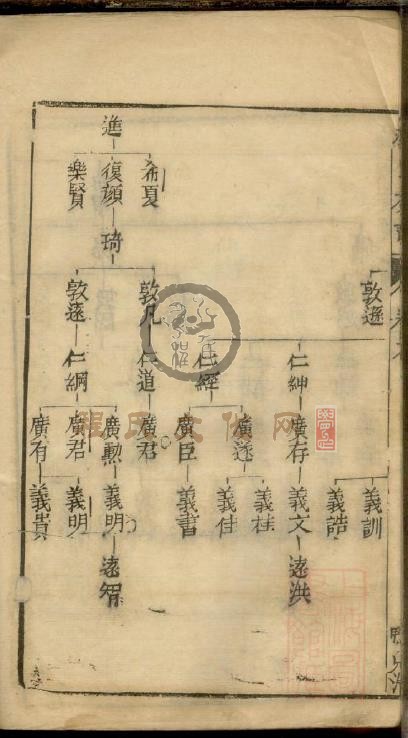 進
希夏 復顔 樂賢
琦
敦遜 敦凡 敦遠
仁紳 仁經 仁道 仁綱
廣存 廣遂 廣臣 廣君 廣勲 廣君 廣有
義訓 義誥 義文 義桂 義佳 義書 義明 義明 義貴
遠洪 遠智